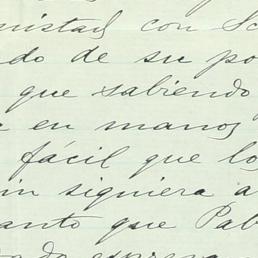 mistad con Sc
do de su po
que sabiendo
e en manos
fácil que lo
in siguiera a
anto que Pab